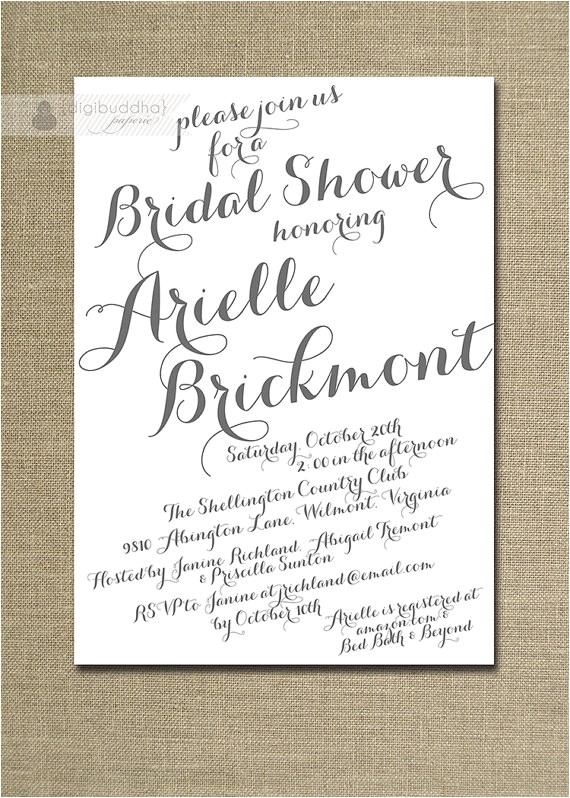 {digibuddha}
paperie
please join us
for a
Bridal Shower
honoring
Arielle
Brickmont
Saturday, October 20th
2:00 in the afternoon
The Shellington Country Club
9810 Abington Lane, Wilmont, Virginia
Hosted by Janine Richland, Abigail Tremont
& Priscilla Sunton
RSVP to Janine at jrichland@email.com
by October 10th
Arielle is registered at
amazon.com &
Bed Bath & Beyond